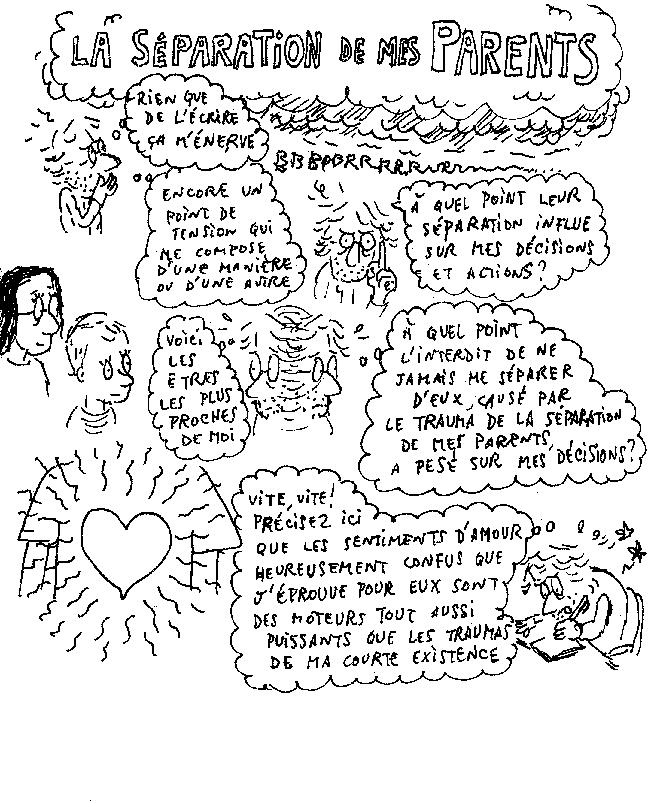 LA SÉPARATION DE MES PARENTS
RIEN QUE
DE L'ÉCRIRE
ÇA M'ÉNERVE
BBBBBRRRRRRRRrrr
ENCORE UN
POINT DE
TENSION QUI
ME COMPOSE
D'UNE MANIÈRE
OU D'UNE AUTRE
À QUEL POINT LEUR
SÉPARATION INFLUE
SUR MES DÉCISIONS
ET ACTIONS?
VOICI
LES
ÊTRES
LES PLUS
PROCHES
DE MOI
À QUEL POINT
L'INTERDIT DE NE
JAMAIS ME SÉPARER
D'EUX, CAUSÉ PAR
LE TRAUMA DE LA SÉPARATION
DE MES PARENTS,
A PESÉ SUR MES DÉCISIONS?
VITE, VITE!
PRÉCISEZ ICI
QUE LES SENTIMENTS D'AMOUR
HEUREUSEMENT CONFUS QUE
J'ÉPROUVE POUR EUX SONT
DES MOTEURS TOUT AUSSI
PUISSANTS QUE LES TRAUMAS
DE MA COURTE EXISTENCE